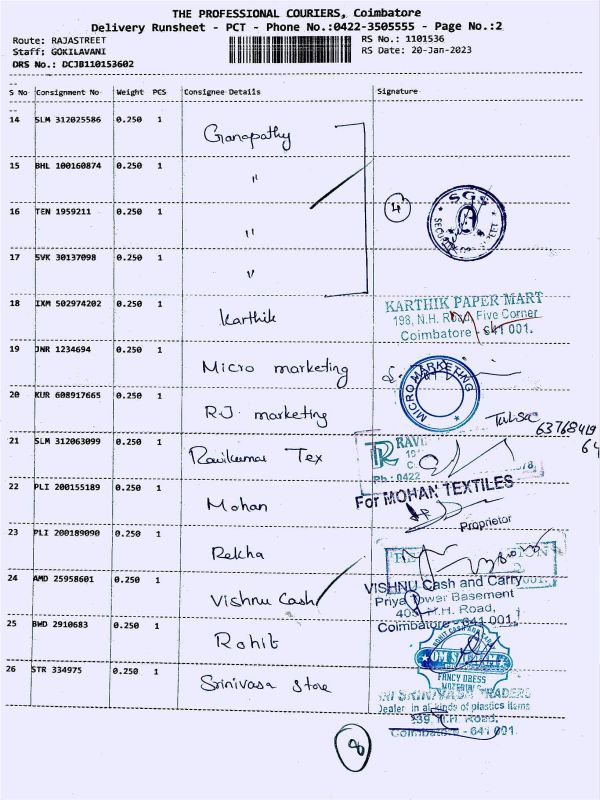 THE PROFESSIONAL COURIERS, Coimbatore
Delivery Runsheet - PCT - Phone No.:0422-3505555 - Page No.:2
Route: RAJASTREET
RS No.: 1101536
Staff: GOKILAVANI
RS Date: 20-Jan-2023
DRS No.: DCJB110153602
S No Consignment No Weight PCS Consignee Details Signature
14 SLM 312025586 0.250 1 Ganapathy
15 BHL 100160874 0.250 1 "
16 TEN 1959211 0.250 1 "
4
SGS
17 SVK 30137098 0.250 1 "
18 IXM 502974202 0.250 1 Karthik
KARTHIK PAPER MART
198, N.H. Road, Five Corner
Coimbatore - 641 001.
19 JNR 1234694 0.250 1 Micro marketing
MICRO MARKETING
20 KUR 608917665 0.250 1 R.J. marketing
Tulsa
63768419
64
21 SLM 312063099 0.250 1 Ravikumar Tex
Ph.: 0422
22 PLI 200155189 0.250 1 Mohan
For MOHAN TEXTILES
Proprietor
23 PLI 200189090 0.250 1 Rekha
24 AMD 25958601 0.250 1 Vishnu Cash
VISHNU Cash and Carry
Priya Tower Basement
405, M.H. Road,
Coimbatore - 641 001.
25 BWD 2910683 0.250 1 Rohit
FANCY DRESS
26 STR 334975 0.250 1 Srinivasa Store
SRI SRINIVASA TRADERS
Dealer in all kinds of plastics items
339, M.H. Road,
Coimbatore - 641 001.
8